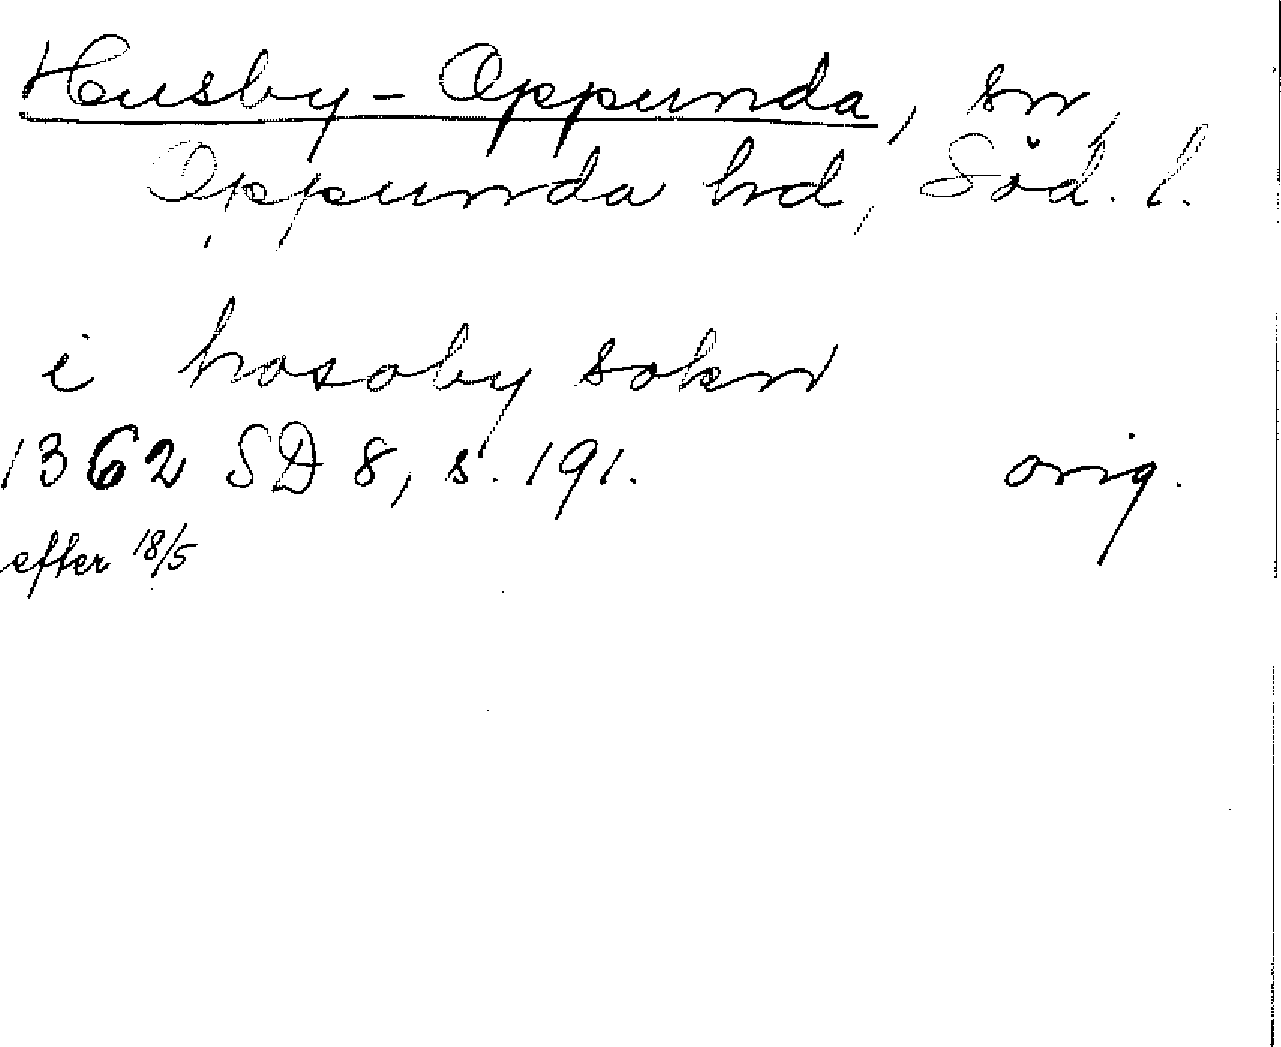 Husby-Oppunda, sn,
Oppunda hd, Söd. l.
i hosoby sokn
1362 SD 8, s. 191. orig.
efter 18/5